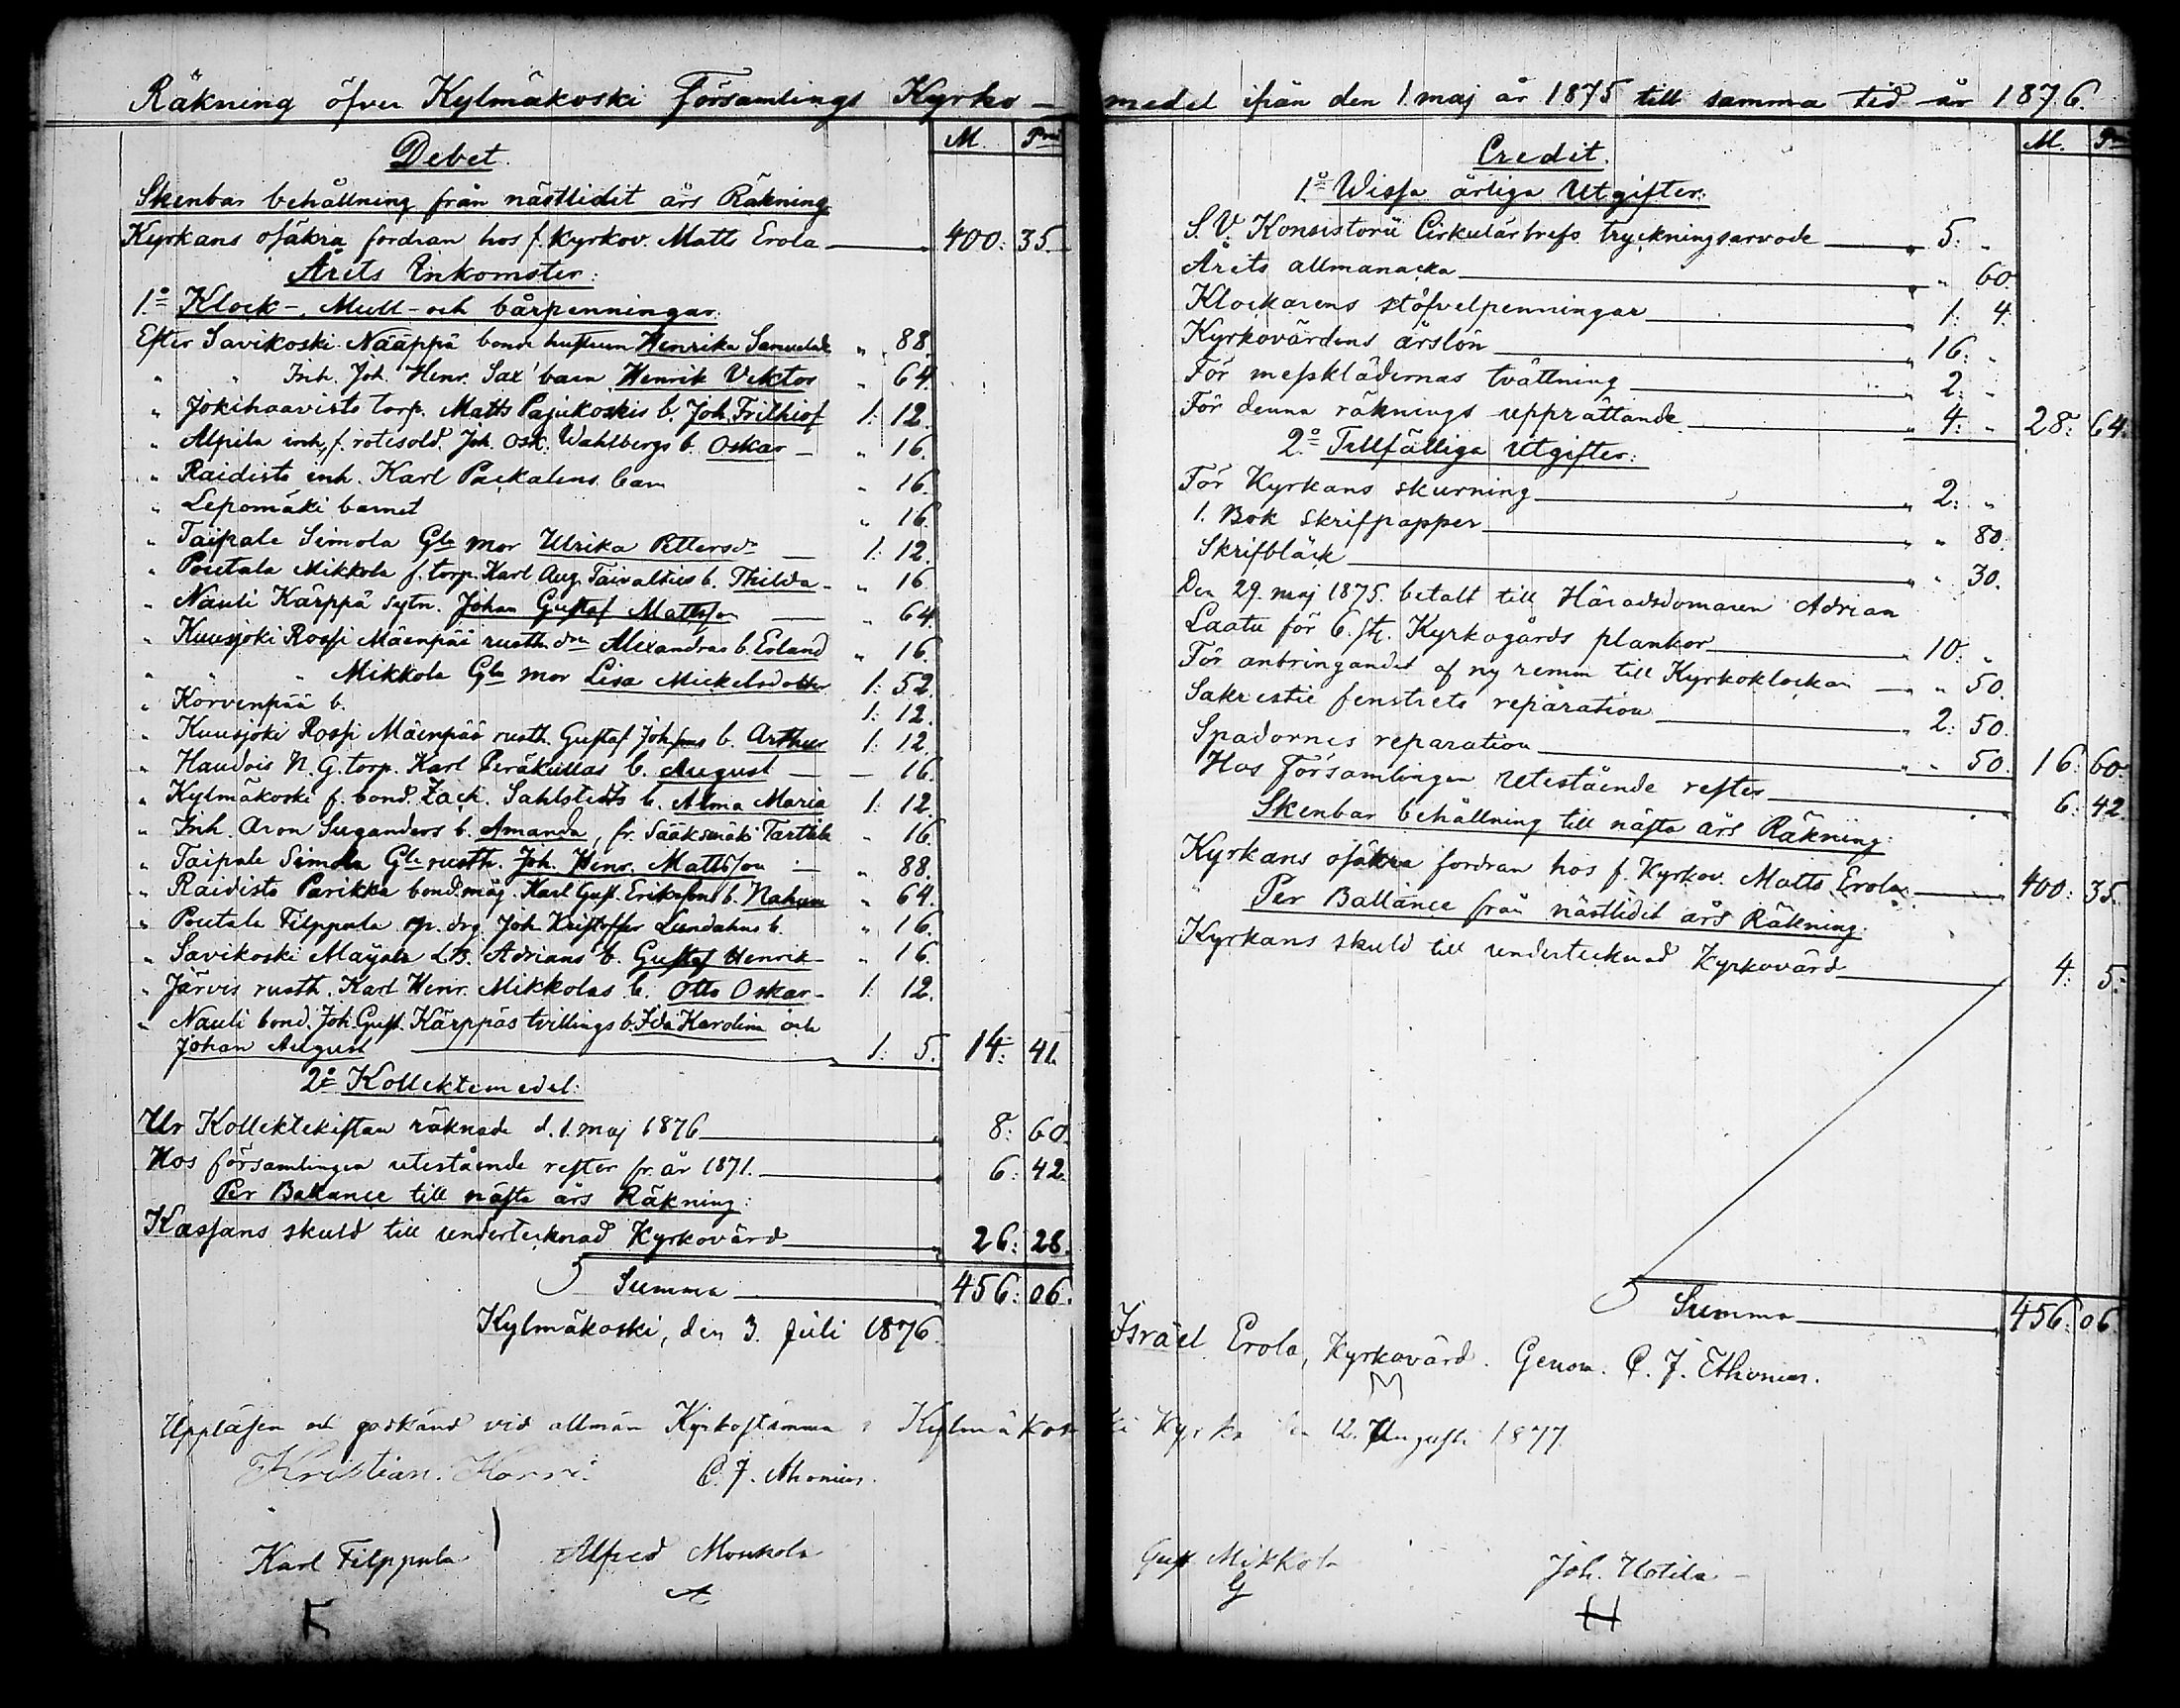 Räkning öfver Kylmäkoski Församlings Kyrko-
Debet.
M. Pni
Skenbar behållning från nästlidit års Räkning
Kyrkans osäkra fordran hos f. Kyrkov. Matts Erola 400: 35.
Årets Inkomster:
1.º Klock-, Mull- och bårpenningar.
Efter Savikoski Nääppä bonde hustrun Henrika Samuelsd. " 88.
" " Inh. Joh. Henr. Sax' barn Henrik Viktor " 64.
" Jokihaavisto torp. Matts Pajukoskis b. Joh. Frithiof 1: 12.
" Alpila inh. f. rotesold. Joh. Osk. Wahlbergs b. Oskar " 16.
" Raidisto inh. Karl Packalens barn " 16.
" Lepomäki barnet " 16.
" Taipale Simola Gla mor Ulrika Pettersdr 1: 12.
" Poutala Mikkola f. torp. Karl Aug. b. Thilda " 16
" Nauli Kärppä sytn. Johan Gustaf Mattsson " 64.
" Kuusjoki Rossi Mäenpää rusth. dr Alexandras b. Erland " 16.
" " " Mikkola Gla mor Lisa Mickelsdotter 1: 52.
" Korvenpää b. 1: 12.
" Kuusjoki Rossi Mäenpää rusth. Gustaf Johssons b. Arthur 1: 12.
" Haudois N. G. torp. Karl Peräkullas b. August — 16.
" Kylmäkoski f. bond. Zach. Sahlstedts b. Alma Maria 1: 12.
" Inh. Aron Suganders b. Amanda, fr. Sääksmäki Tarttila " 16.
" Taipale Simola Gla rusth. Joh. Henr. Mattsson " 88.
" Raidisto Parikka bond. måg Karl Gust. Erikssons b. Nahum " 64.
" Poutala Filppula drg. Joh. Kristoffer Lundahns b. " 16.
" Savikoski Mäyälä Adrians b. Gustaf Henrik " 16.
" Järvis rusth. Karl Henr. Mikkolas b. Otto Oskar 1: 12.
" Nauli bond. Joh. Gust. Kärppäs tvillings b. Ida Karolina och
Johan August 1: 5. 14: 41.
2.º Kollektemedel:
Ur Kollektekistan räknade d. 1. maj 1876 8: 60.
Hos församlingen utestående rester fr. år 1871. 6: 42.
Per Ballance till nästa års Räkning:
Kassans skuld till undertecknad Kyrkovärd 26: 28.
Summa 456: 06.
Kylmäkoski, den 3. Juli 1876.
medel ifrån den 1 maj år 1875 till samma tid år 1876.
Credit.
M. Pni
1.º Wissa årliga Utgifter:
S. V. Konsistorii Cirkulärbrefs tryckningsarvode " 5: "
Årets allmanacka " " 60.
Klockarens stöfvelpenningar " 1: 4.
Kyrkovärdens årslön " 16: "
För messklädernas tvättning " 2: "
För denna räknings upprättande " 4: " 28: 64.
2.º Tillfälliga Utgifter:
För Kyrkans skurning " 2: "
1. Bok skrifpapper " " 80.
Skrifbläck " " 30.
Den 29. maj 1875. betalt till Häradsdomaren Adrian
Laatu för 6. st. Kyrkogårds plankor " 10: "
För anbringandet af ny remm till Kyrkoklockan " " 50.
Sakrestie fenstrets reparation " 2: 50.
Spadornes reparation " " 50. 16: 60.
Hos Församlingen utestående rester 6: 42
Skenbar behållning till nästa års Räkning:
Kyrkans osäkra fordran hos f. Kyrkov. Matts Erola 400: 35.
Per Ballance från nästlidit års Räkning:
Kyrkans skuld till undertecknad Kyrkovärd 4: 5.
Summa 456: 06.
Israel Erola, Kyrkovärd. Genom. C. J. Ahonius.
Uppläsen och godkänd vid allmän Kyrkostämma i Kylmäkoski Kyrka den 12. Augusti 1877.
Kristian. Korri. C. J. Ahonius.
Karl Filppula Alfred Monkola
A
Gust. Mikkola Joh. Uotila
G H